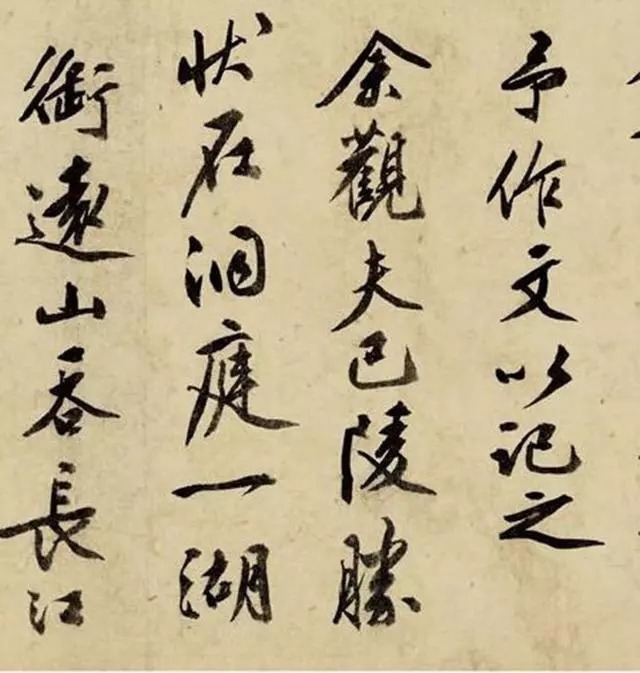 予作文以記之
余觀夫巴陵勝
狀在洞庭一湖
銜遠山吞長江